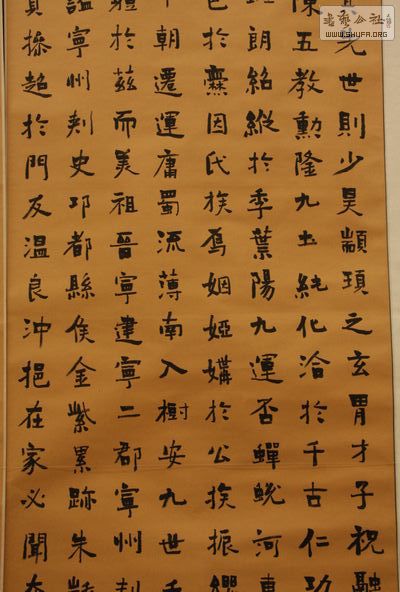 書藝公社
WWW.SHUFA.ORG
先世則少昊顓頊之玄胄才子祝融
陳五教勳隆九土純化洽於千古仁功
朗紹縱於季葉陽九運否蟬蛻河
邑於爨因氏族焉姻婭媾於公族振纓
朝遷運庸蜀流薄南入樹安九世千
體於茲而美祖晉寧建寧二郡寧州刾
諡寧州刾史邛都縣侯金紫累跡朱
貞操超於門友溫良沖挹在家必聞